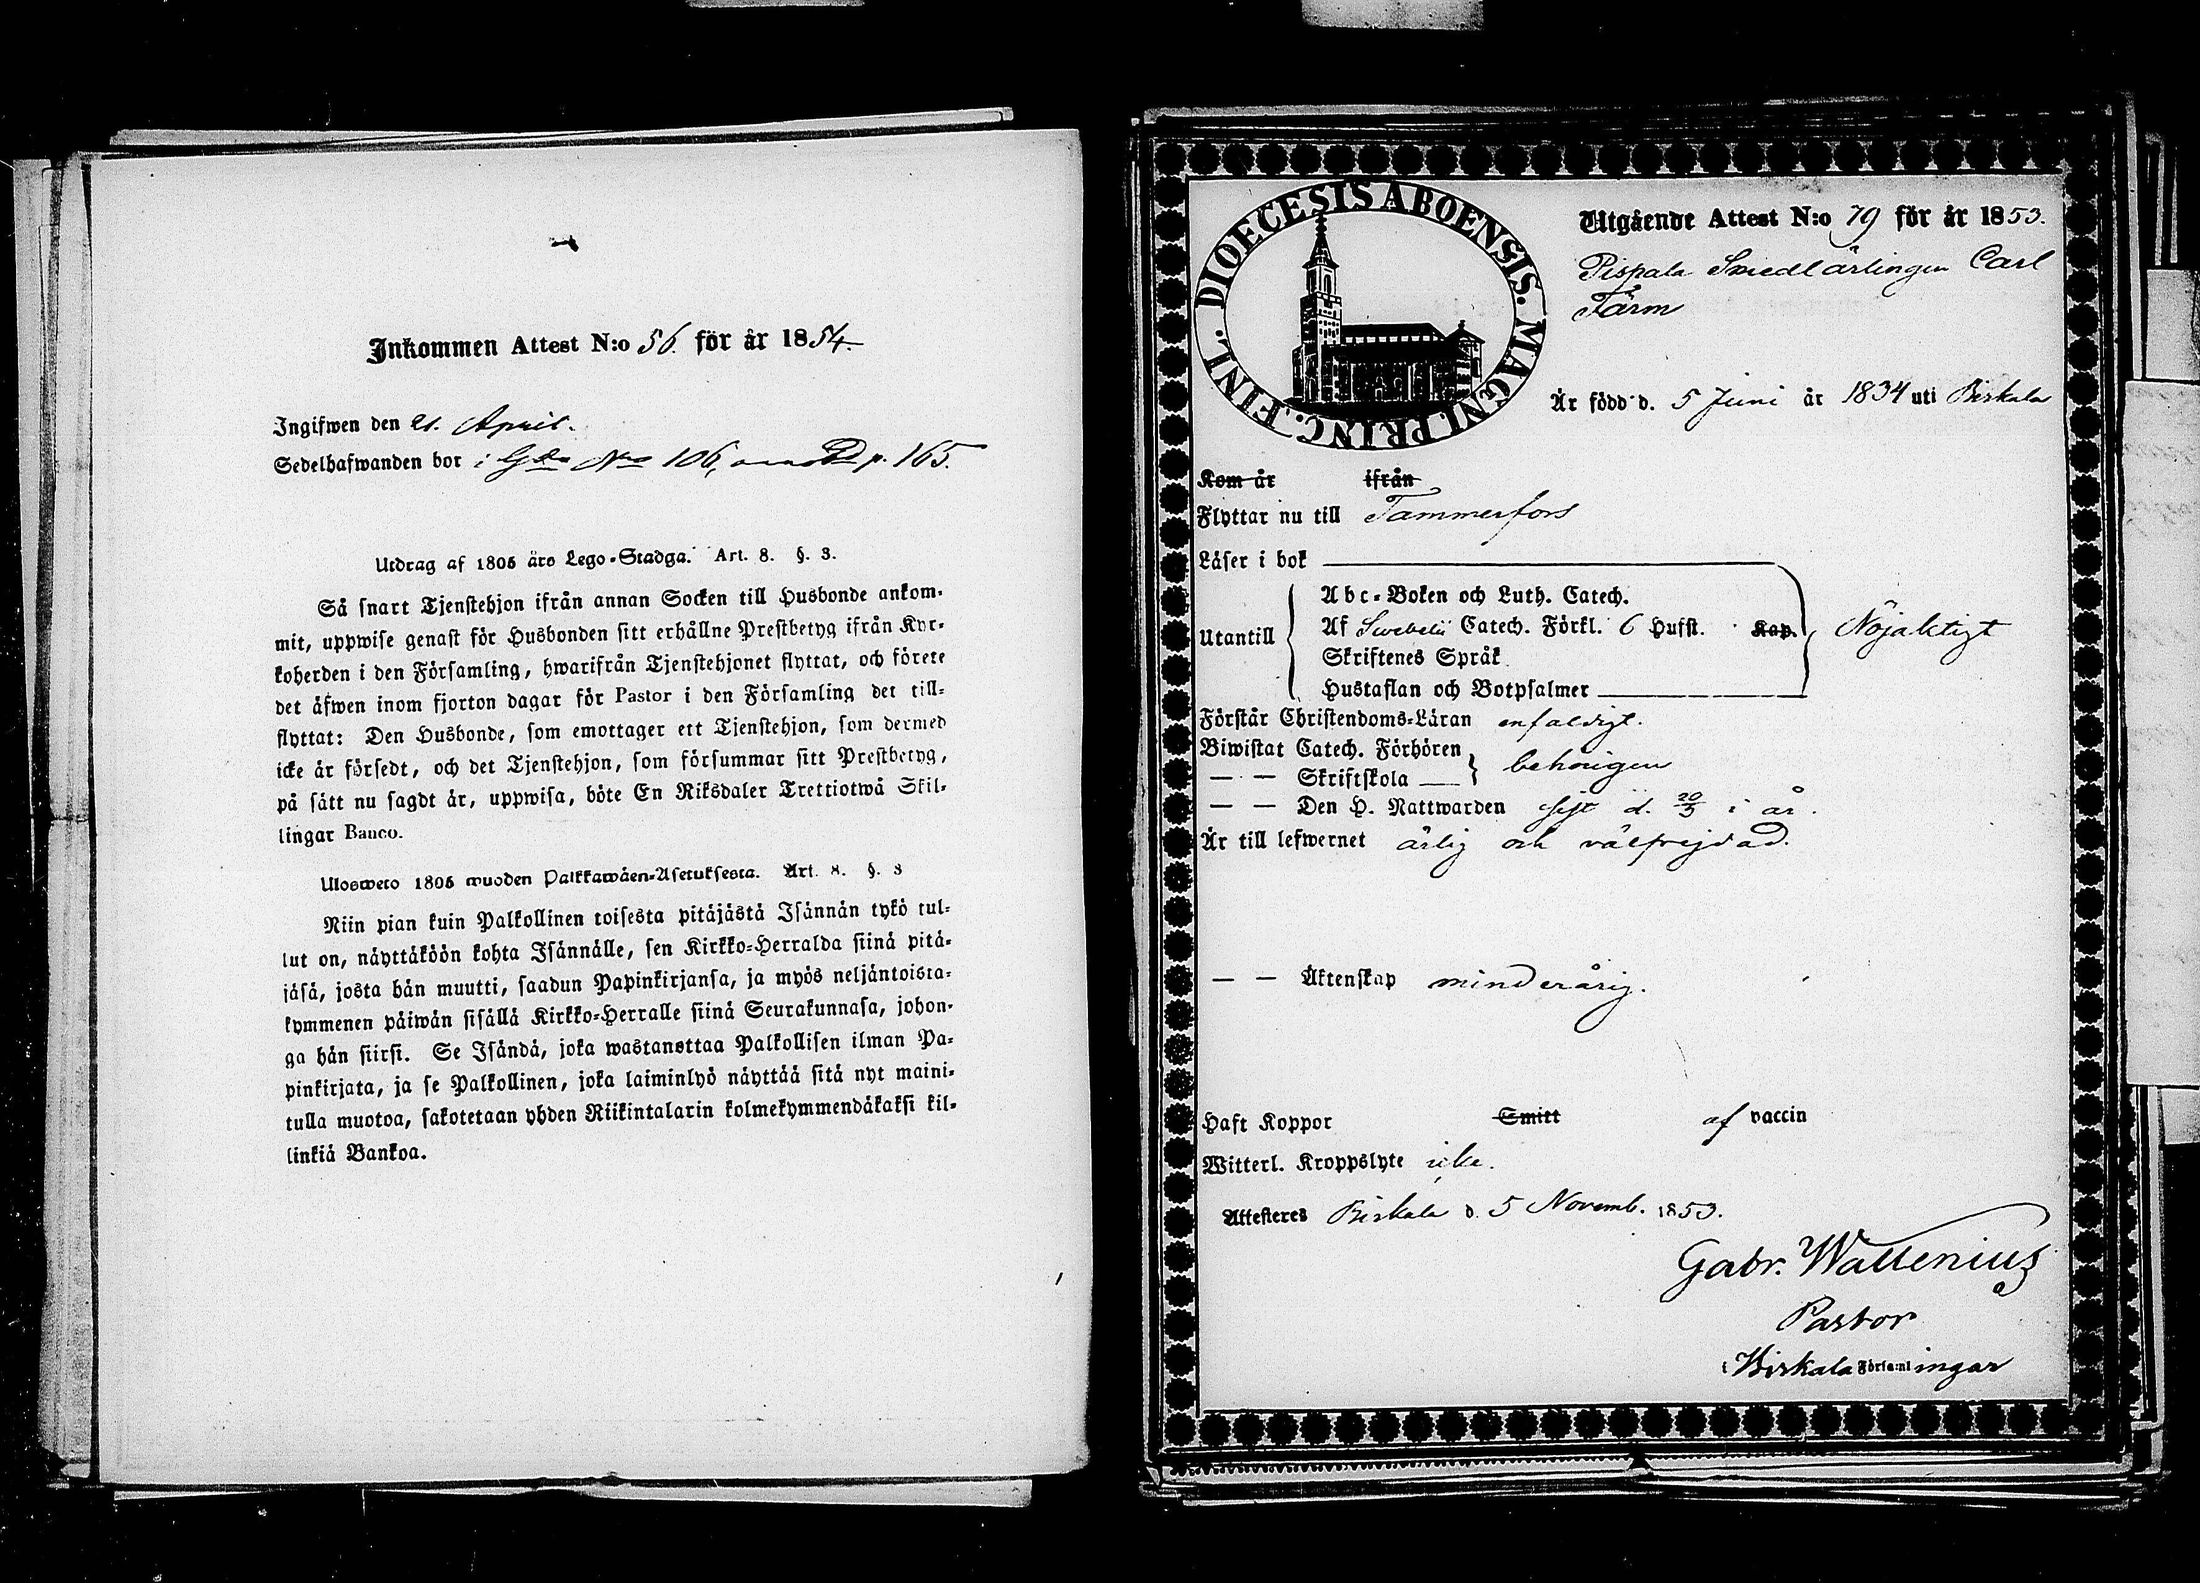 Inkommen Attest N:o 56. för år 1854.
Ingifwen den 21. April.
Sedelhafwanden bor i Gån No 106, p. 165.
Utdrag af 1805 års Lego-Stadga. Art. 8. §. 3.
Så snart Tjenstehjon ifrån annan Socken till Husbonde ankom-
mit, uppwise genast för Husbonden sitt erhållne Prestbetyg ifrån Kyr-
koherden i den Församling, hwarifrån Tjenstehjonet flyttat, och förete
det äfwen inom fjorton dagar för Pastor i den Församling det till-
flyttat: Den Husbonde, som emottager ett Tjenstehjon, som dermed
icke är försedt, och det Tjenstehjon, som försummar sitt Prestbetyg,
på sätt nu sagdt är, uppwisa, böte En Riksdaler Trettiotwå Skil-
lingar Banco.
Ulosweto 1805 wuoden Palkkawäen-Asetuksesta. Art. 8. §. 3
Niin pian kuin Palkollinen toisesta pitäjästä Isännän tykö tul-
lut on, näyttäköön kohta Isännälle, sen Kirkko-Herralda siinä pitä-
jäsä, josta hän muutti, saadun Papinkirjansa, ja myös neljäntoista-
kymmenen päiwän sisällä Kirkko-Herralle siinä Seurakunnasa, johon-
ga hän siirsi. Se Isändä, joka wastanottaa Palkollisen ilman Pa-
pinkirjata, ja se Palkollinen, joka laiminlyö näyttää sitä nyt maini-
tulla muotoa, sakotetaan yhden Riikintalarin kolmekymmendäkaksi kil-
linkiä Bankoa.
DIOECESIS ABOENSIS. MAGNI PRINC. FINL.
Utgående Attest N:o 79 för år 1853.
Pispala Smedlärlingen Carl
Färm
Är född d. 5 Juni år 1834 uti Birkala
Kom år ifrån
Flyttar nu till Tammerfors
Läser i bok
Utantill
Abc-Boken och Luth. Catech.
Af Swebelii Catech. Förkl. 6 Hufst. Kap.
Skriftenes Språk
Hustaflan och Botpsalmer
Nöjaktigt
Förstår Christendoms-Läran enfaldigt.
Biwistat Catech. Förhören
— — Skriftskola —
behörigen
— — Den H. Nattwarden sist d. 20/3 i år.
Är till lefwernet ärlig och välfrejdad.
— — Äktenskap minderårig.
Haft Koppor Smitt af vaccin
Witterl. Kroppslyte icke.
Attesteres Birkala d. 5 Novemb. 1853.
Gabr. Wallenius
Pastor
i Birkala Församlingar